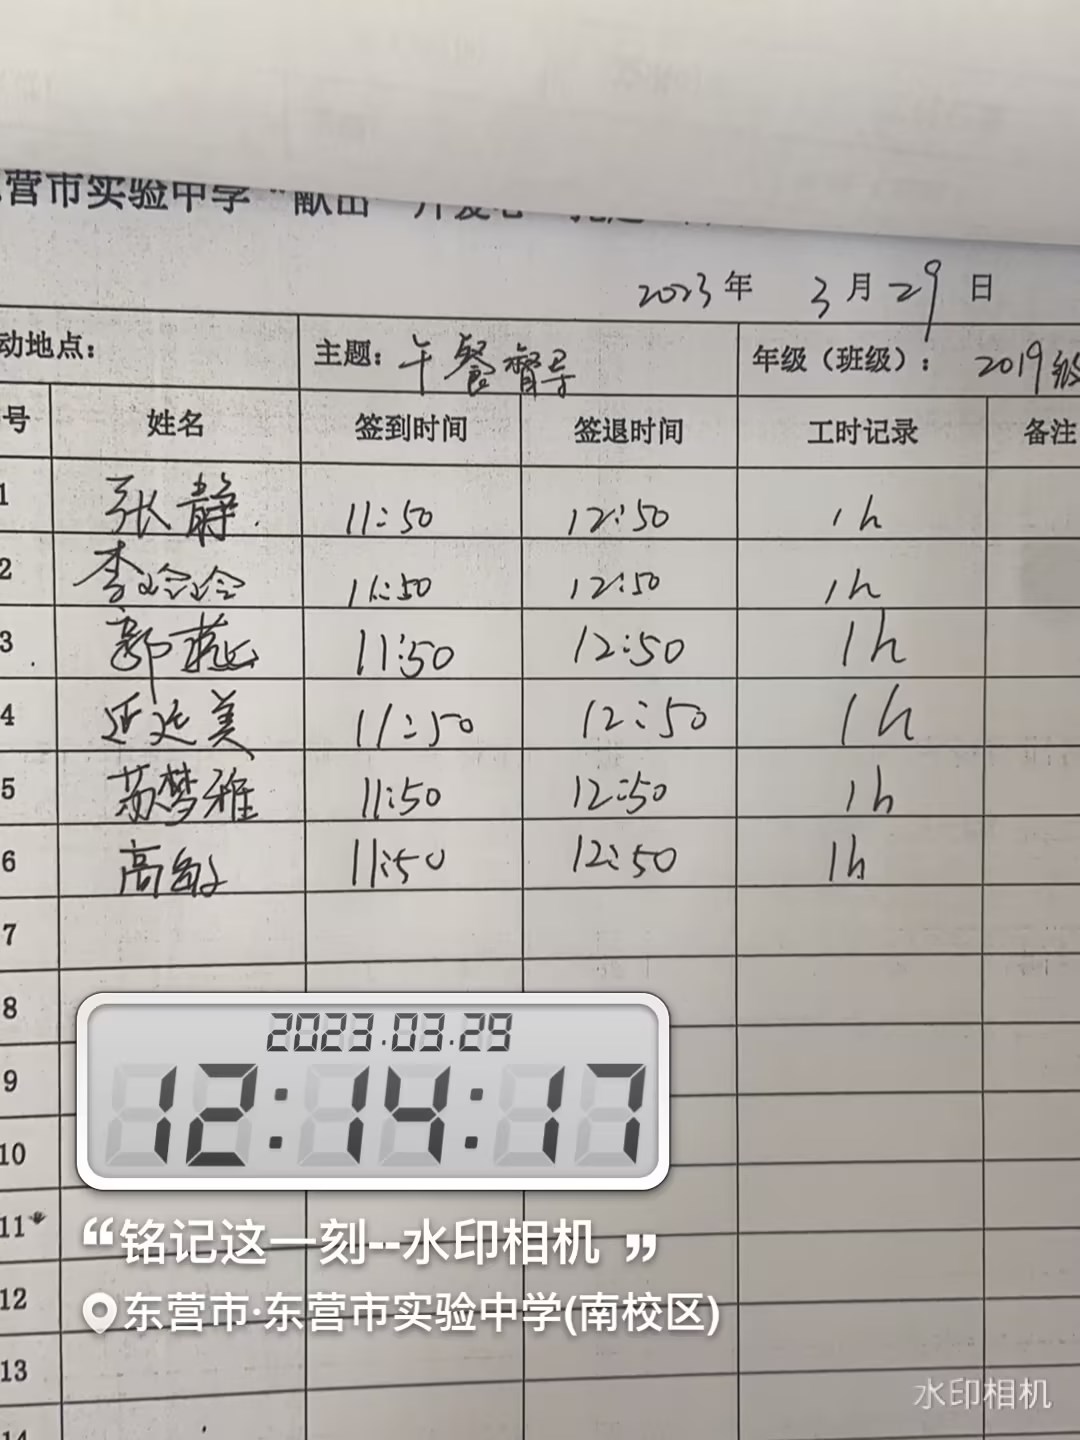 营市实验中学“献出
2023年 3月29日
动地点： 主题：午餐督导 年级（班级）：2019级
号 姓名 签到时间 签退时间 工时记录 备注
1 张静 11:50 12:50 1h
2 李玲玲 11:50 12:50 1h
3 郭燕 11:50 12:50 1h
4 延廷美 11:50 12:50 1h
5 苏梦雅 11:50 12:50 1h
6 高敏 11:50 12:50 1h
7
8
2023.03.29
9
12:14:17
10
11
“铭记这一刻--水印相机”
12
东营市·东营市实验中学(南校区)
13
水印相机
14